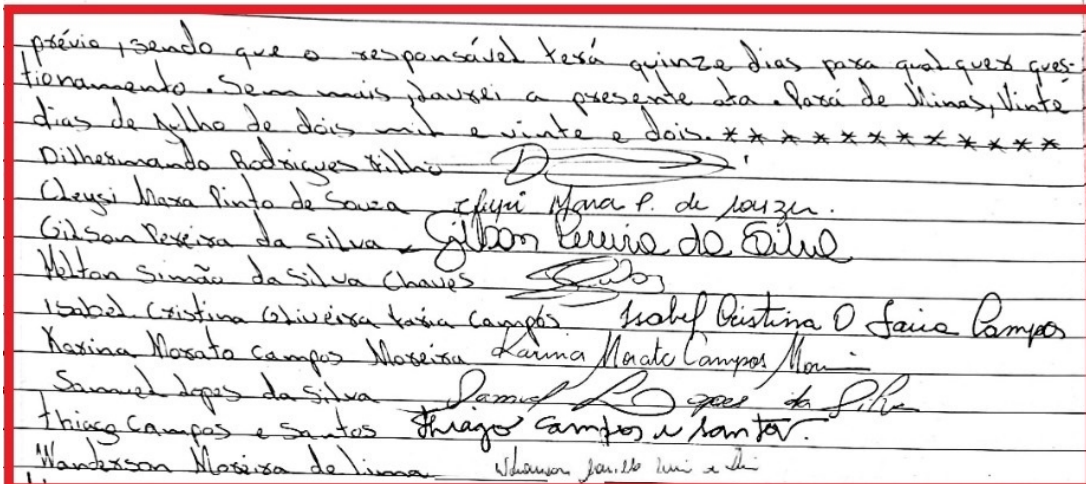 prévio, sendo que o responsável terá quinze dias para qualquer ques-
tionamento. Sem mais, lavrei a presente ata. Pará de Minas, Vinte
dias de julho de dois mil e vinte e dois. * * * * * * * * * * * *
Dilhermando Rodrigues Filho
Cleysi Mara Pinto de Souza Cleysi Mara P. de Souza.
Gilson Pereira da Silva Gilson Pereira da Silva
Helton Simão da Silva Chaves
Isabel Cristina Oliveira Faria Campos Isabel Cristina O Faria Campos
Karina Morato Campos Moreira Karina Morato Campos
Samuel Lopes da Silva Samuel Lopes da Silva
Thiago Campos e Santos Thiago Campos e Santos.
Wanderson Moreira de Lima